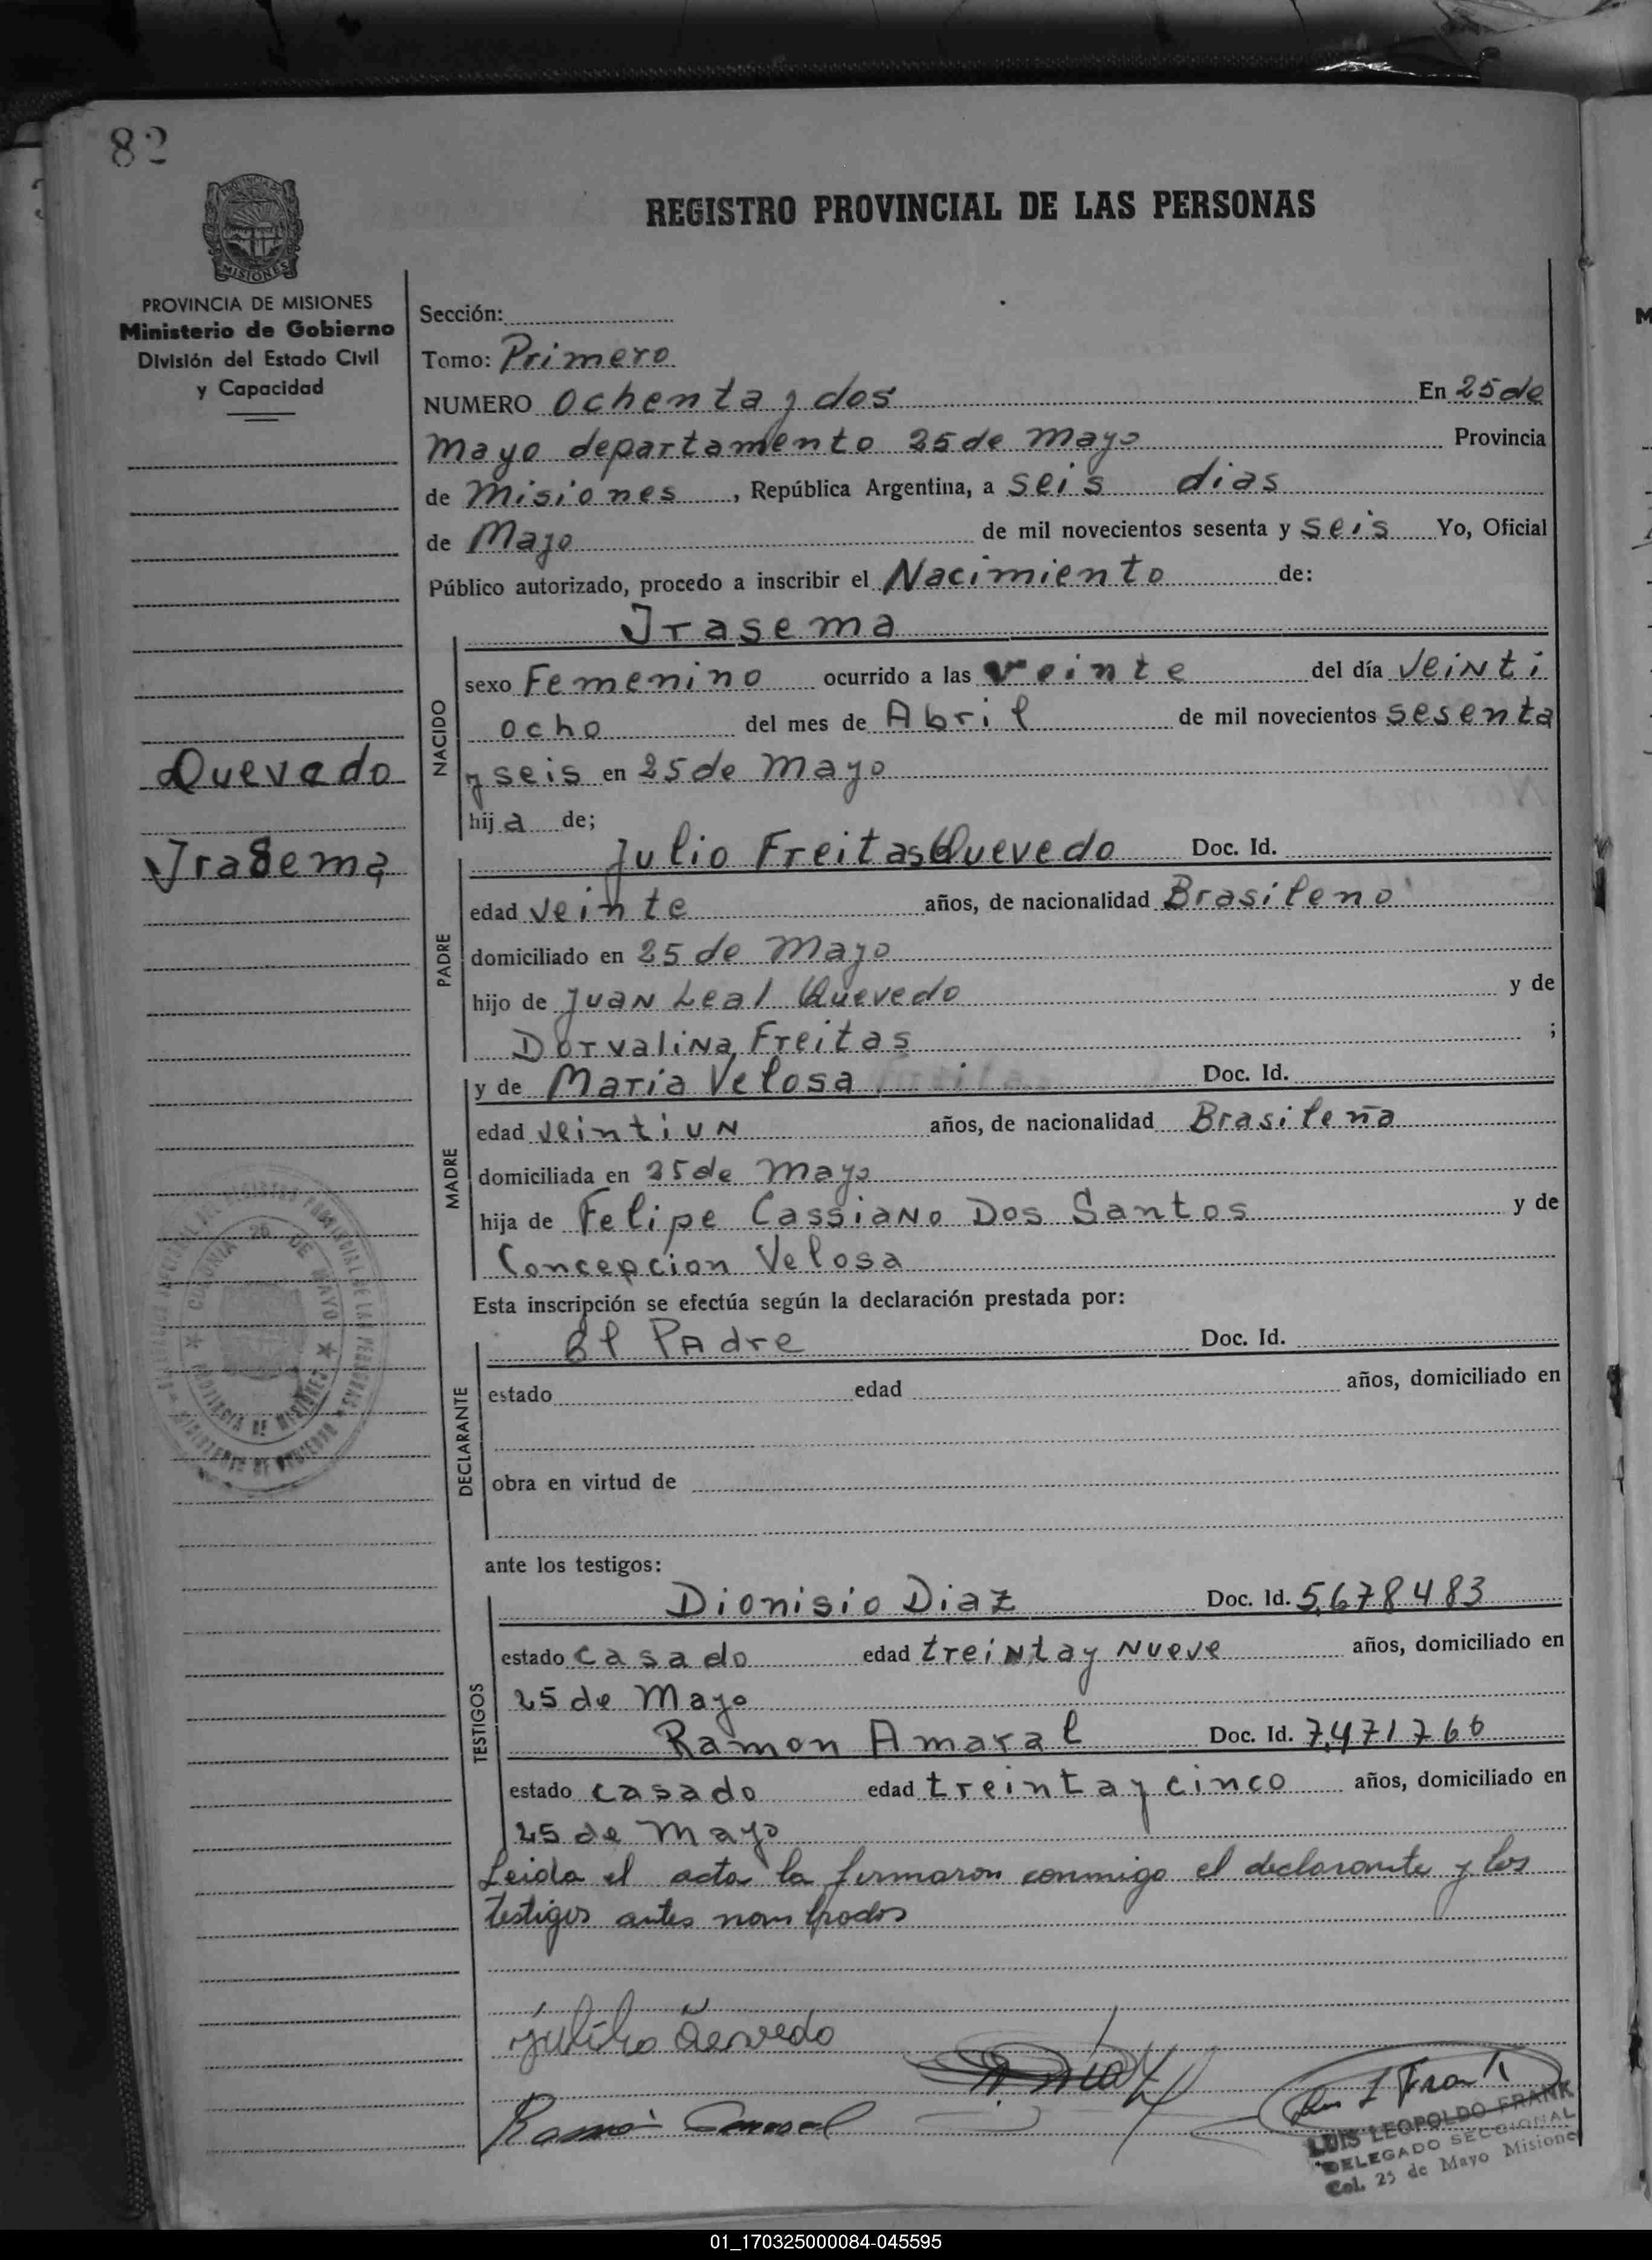 82
MISIONES
REGISTRO PROVINCIAL DE LAS PERSONAS
PROVINCIA DE MISIONES
Ministerio de Gobierno
División del Estado Civil
y Capacidad
Quevedo
Irasema
COLONIA 25 DE MAYO
Sección:
Tomo: Primero
NUMERO Ochenta y dos En 25 de
Mayo departamento 25 de Mayo Provincia
de Misiones, República Argentina, a seis dias
de Mayo de mil novecientos sesenta y seis Yo, Oficial
Público autorizado, procedo a inscribir el Nacimiento de:
NACIDO
Irasema
sexo Femenino ocurrido a las veinte del día veinti
ocho del mes de Abril de mil novecientos sesenta
y seis en 25 de Mayo
hija de;
PADRE
Julio Freitas Quevedo Doc. Id.
edad veinte años, de nacionalidad Brasileno
domiciliado en 25 de Mayo
hijo de Juan Leal Quevedo y de
Dorvalina Freitas ;
MADRE
y de Maria Velosa Doc. Id.
edad veintiun años, de nacionalidad Brasileña
domiciliada en 25 de Mayo
hija de Felipe Cassiano Dos Santos y de
Concepcion Velosa
Esta inscripción se efectúa según la declaración prestada por:
DECLARANTE
El Padre Doc. Id.
estado edad años, domiciliado en
obra en virtud de
ante los testigos:
TESTIGOS
Dionisio Diaz Doc. Id. 5,678483
estado casado edad treinta y nueve años, domiciliado en
25 de Mayo
Ramon Amaral Doc. Id. 7,471766
estado casado edad treinta y cinco años, domiciliado en
25 de Mayo
Leida el acta la firmaron conmigo el declarante y los
testigos antes nombrados
LUIS LEOPOLDO FRANK
DELEGADO SECCIONAL
Col. 25 de Mayo Misiones
01_170325000084-045595